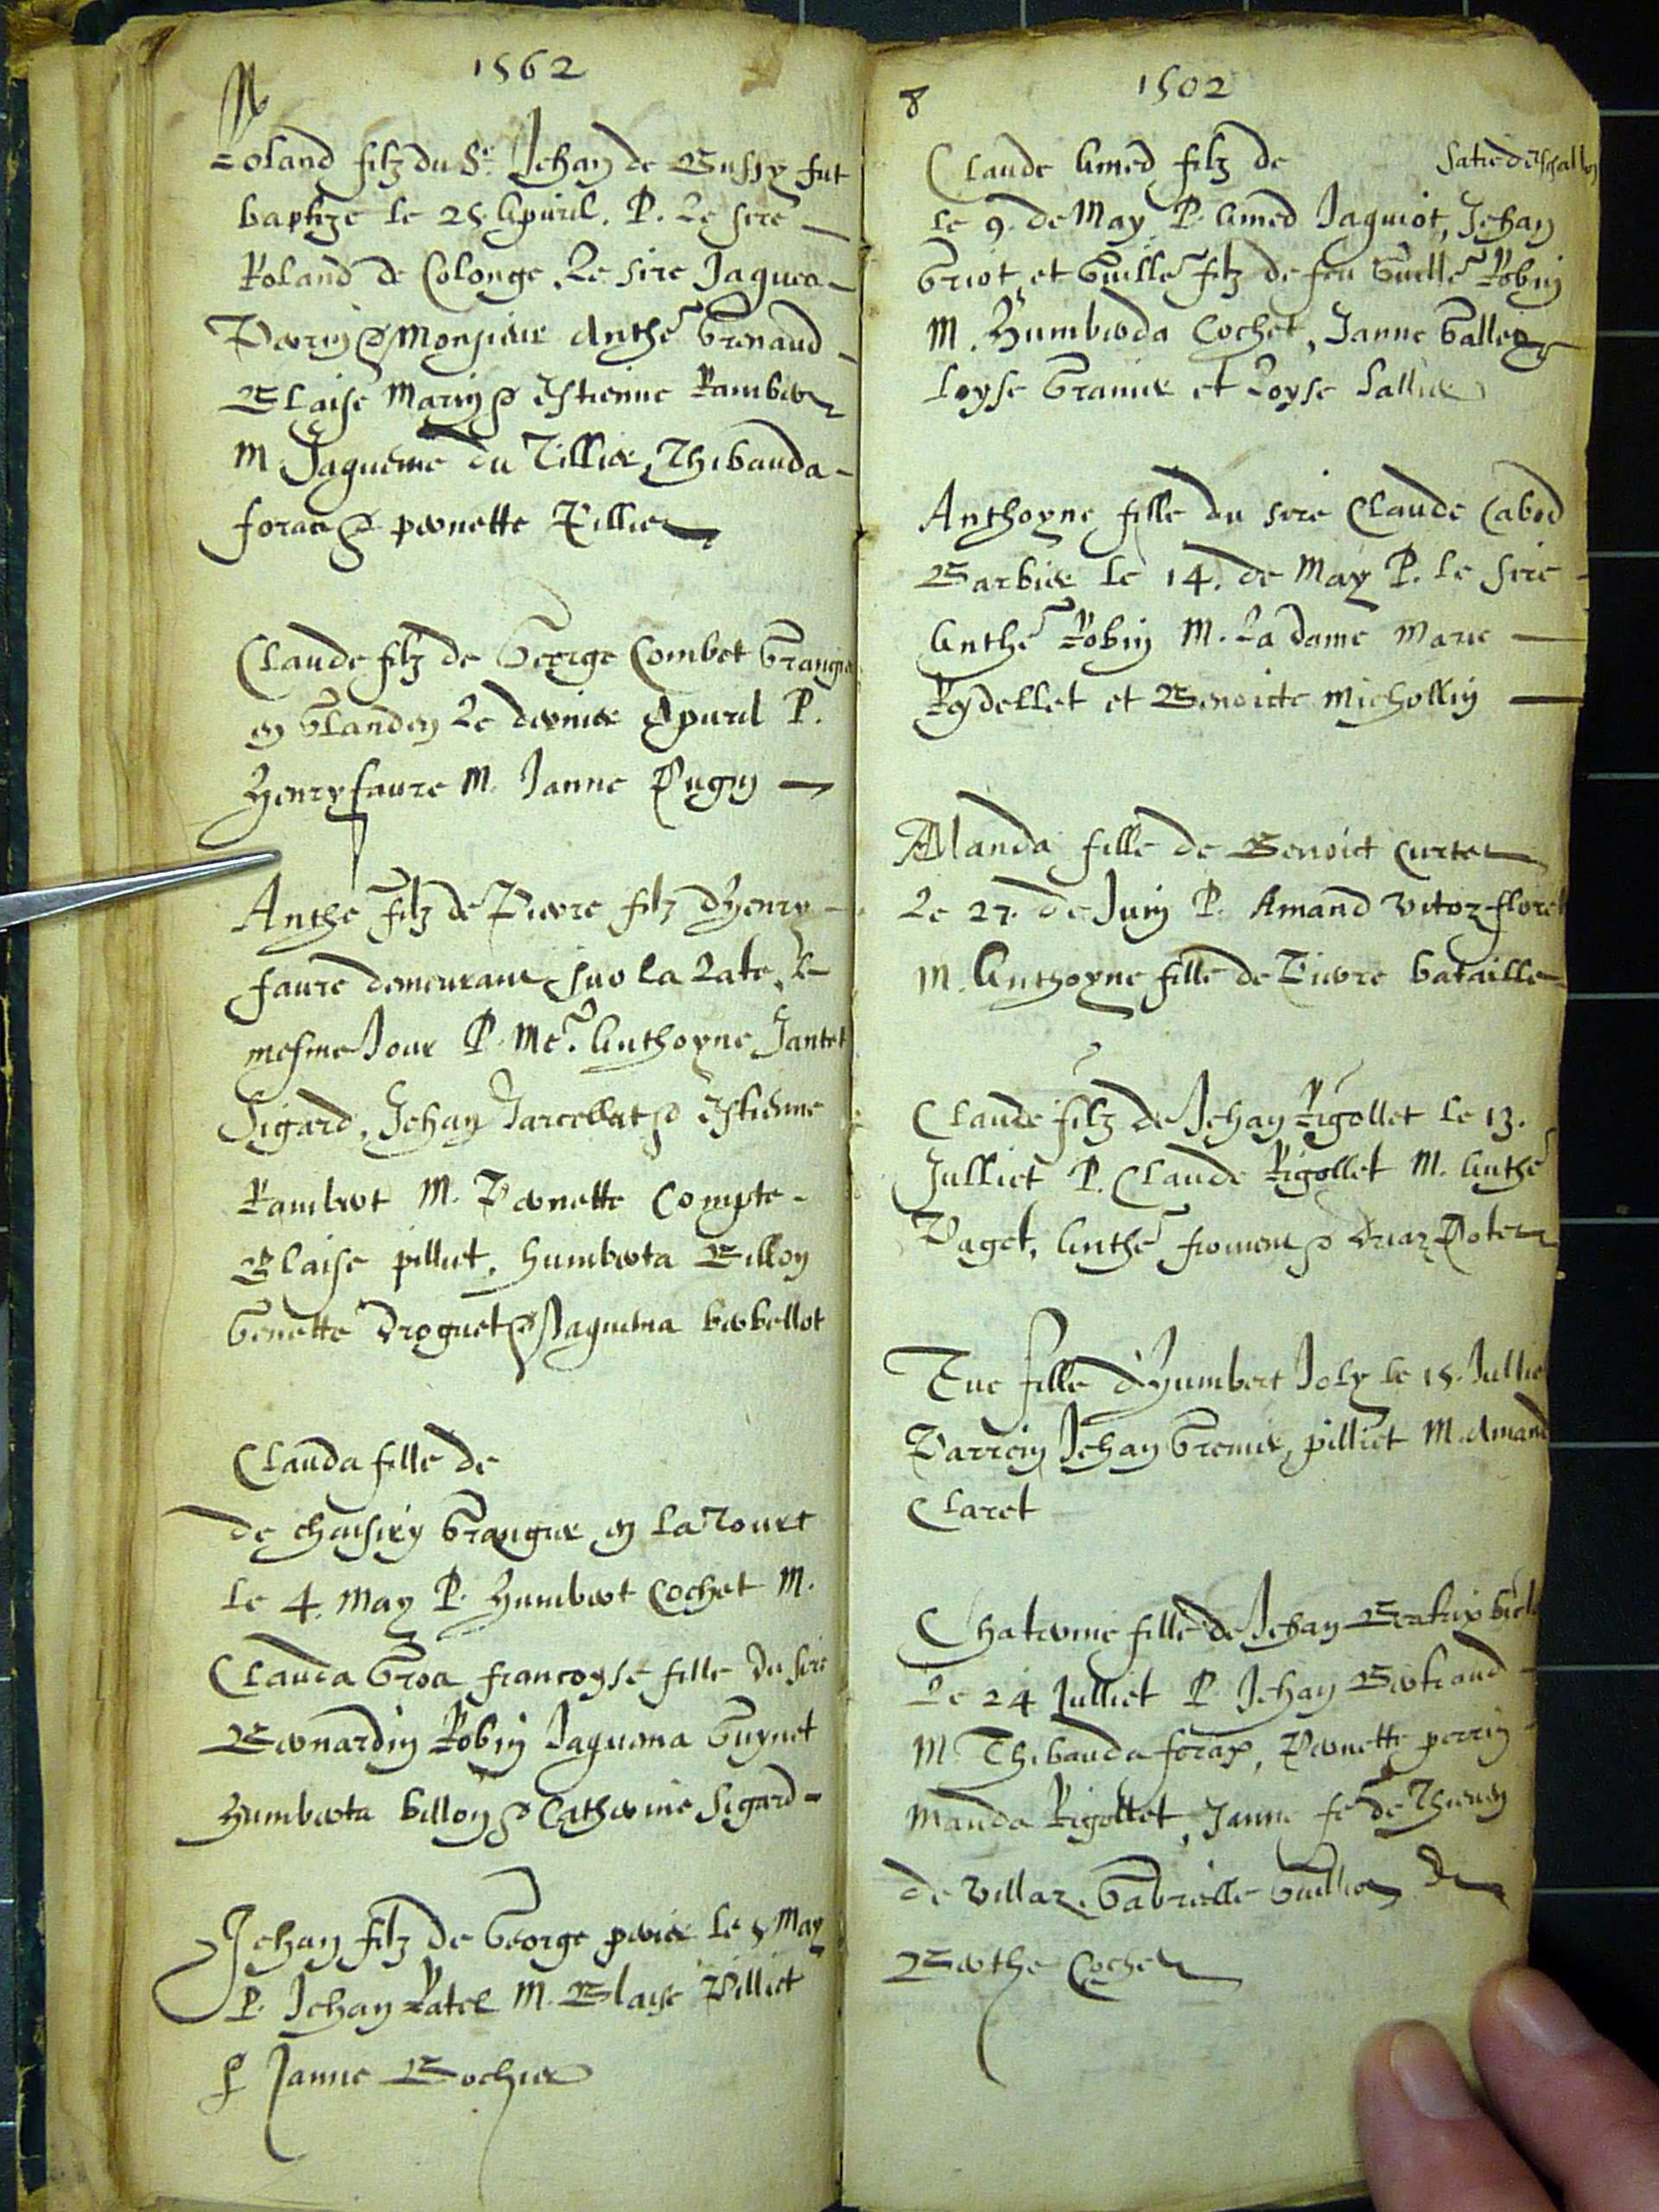 1562
Roland filz du Sr. Jehan de Bussy fut
baptize le 25. Apuril. P. Le sire
Roland de Colonge, Le sire Jaques
Perrin & Monsieur Anthe Grenaud
Blaise Marin & Estienne Rambert
M Jaqueme du Tillier, Thibauda
foraz & pernette Tillier
Claude filz de George Combet Grangier
en Glanden Le dernier Apuril P.
Henry faure M. Janne Pugin
Anthe filz de Pierre filz d'Henry
faure demeurant sur la Late, le
mesme Jour P. Me. Anthoyne Jantet
Sigard, Jehan Jarcellat & Estienne
Rambert M. Pernette Compte
Blaise pilliet, humberta Billon
Genette Droguet & Jaquema berbellot
Clauda fille de
de chaisiry Grangier en la Tourt
le 4. May P. Humbert Cochet M.
Clauda Groz francoyse fille du sire
Bernardin Robin Jaquema Guynet
Humberta billon & Catherine Sigard
Jehan filz de George perrier le 5 May
P. Jehan Ratel M. Blaise Pilliet
& Janne Bochier
8
1562
Claude Amed filz de
le 9. de May P. Amed Jaquiot, Jehan
Griot, et Guille filz de feu Guille Robin
M. Humberda Cochet, Janne Gallez
Loyse Granier et Loyse Sallier
Anthoyne fille du sire Claude Cabod
Barbier le 14. de May P. le sire
Anthe Robin M. La dame Marie
Rydellet et Benoicte Michollin
Manda fille de Benoict Curtet
Le 27. de Juin P. Amand Vitoz floret
M. Anthoyne fille de Pierre bataille
Claude filz de Jehan Rigollet le 13.
Julliet P. Claude Rigollet M. Anthe
Paget, Anthe froment &
Eue fille d'Humbert Joly le 15. Julliet
Parrein Jehan Grenier, pilliet M. Amand
Claret
Chaterine fille de Jehan
Le 24 Julliet P. Jehan Bertrand
M Thibauda foraz, Pernette perrin
Manda Rigollet, Janne fe de Thieven
de Villaz, Gabrielle Guillion
Berthe Cochet